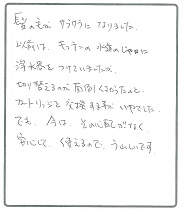 髪の毛が サラサラに なりました。
以前は、キッチンの 水道の じゃ口に
浄水器を つけていましたが、
切り替えるのが 面倒くさかったのと、
カートリッジを 交換する事が いやでした。
でも、今は、その心配がなく
安心して、使えるので、うれしいです。